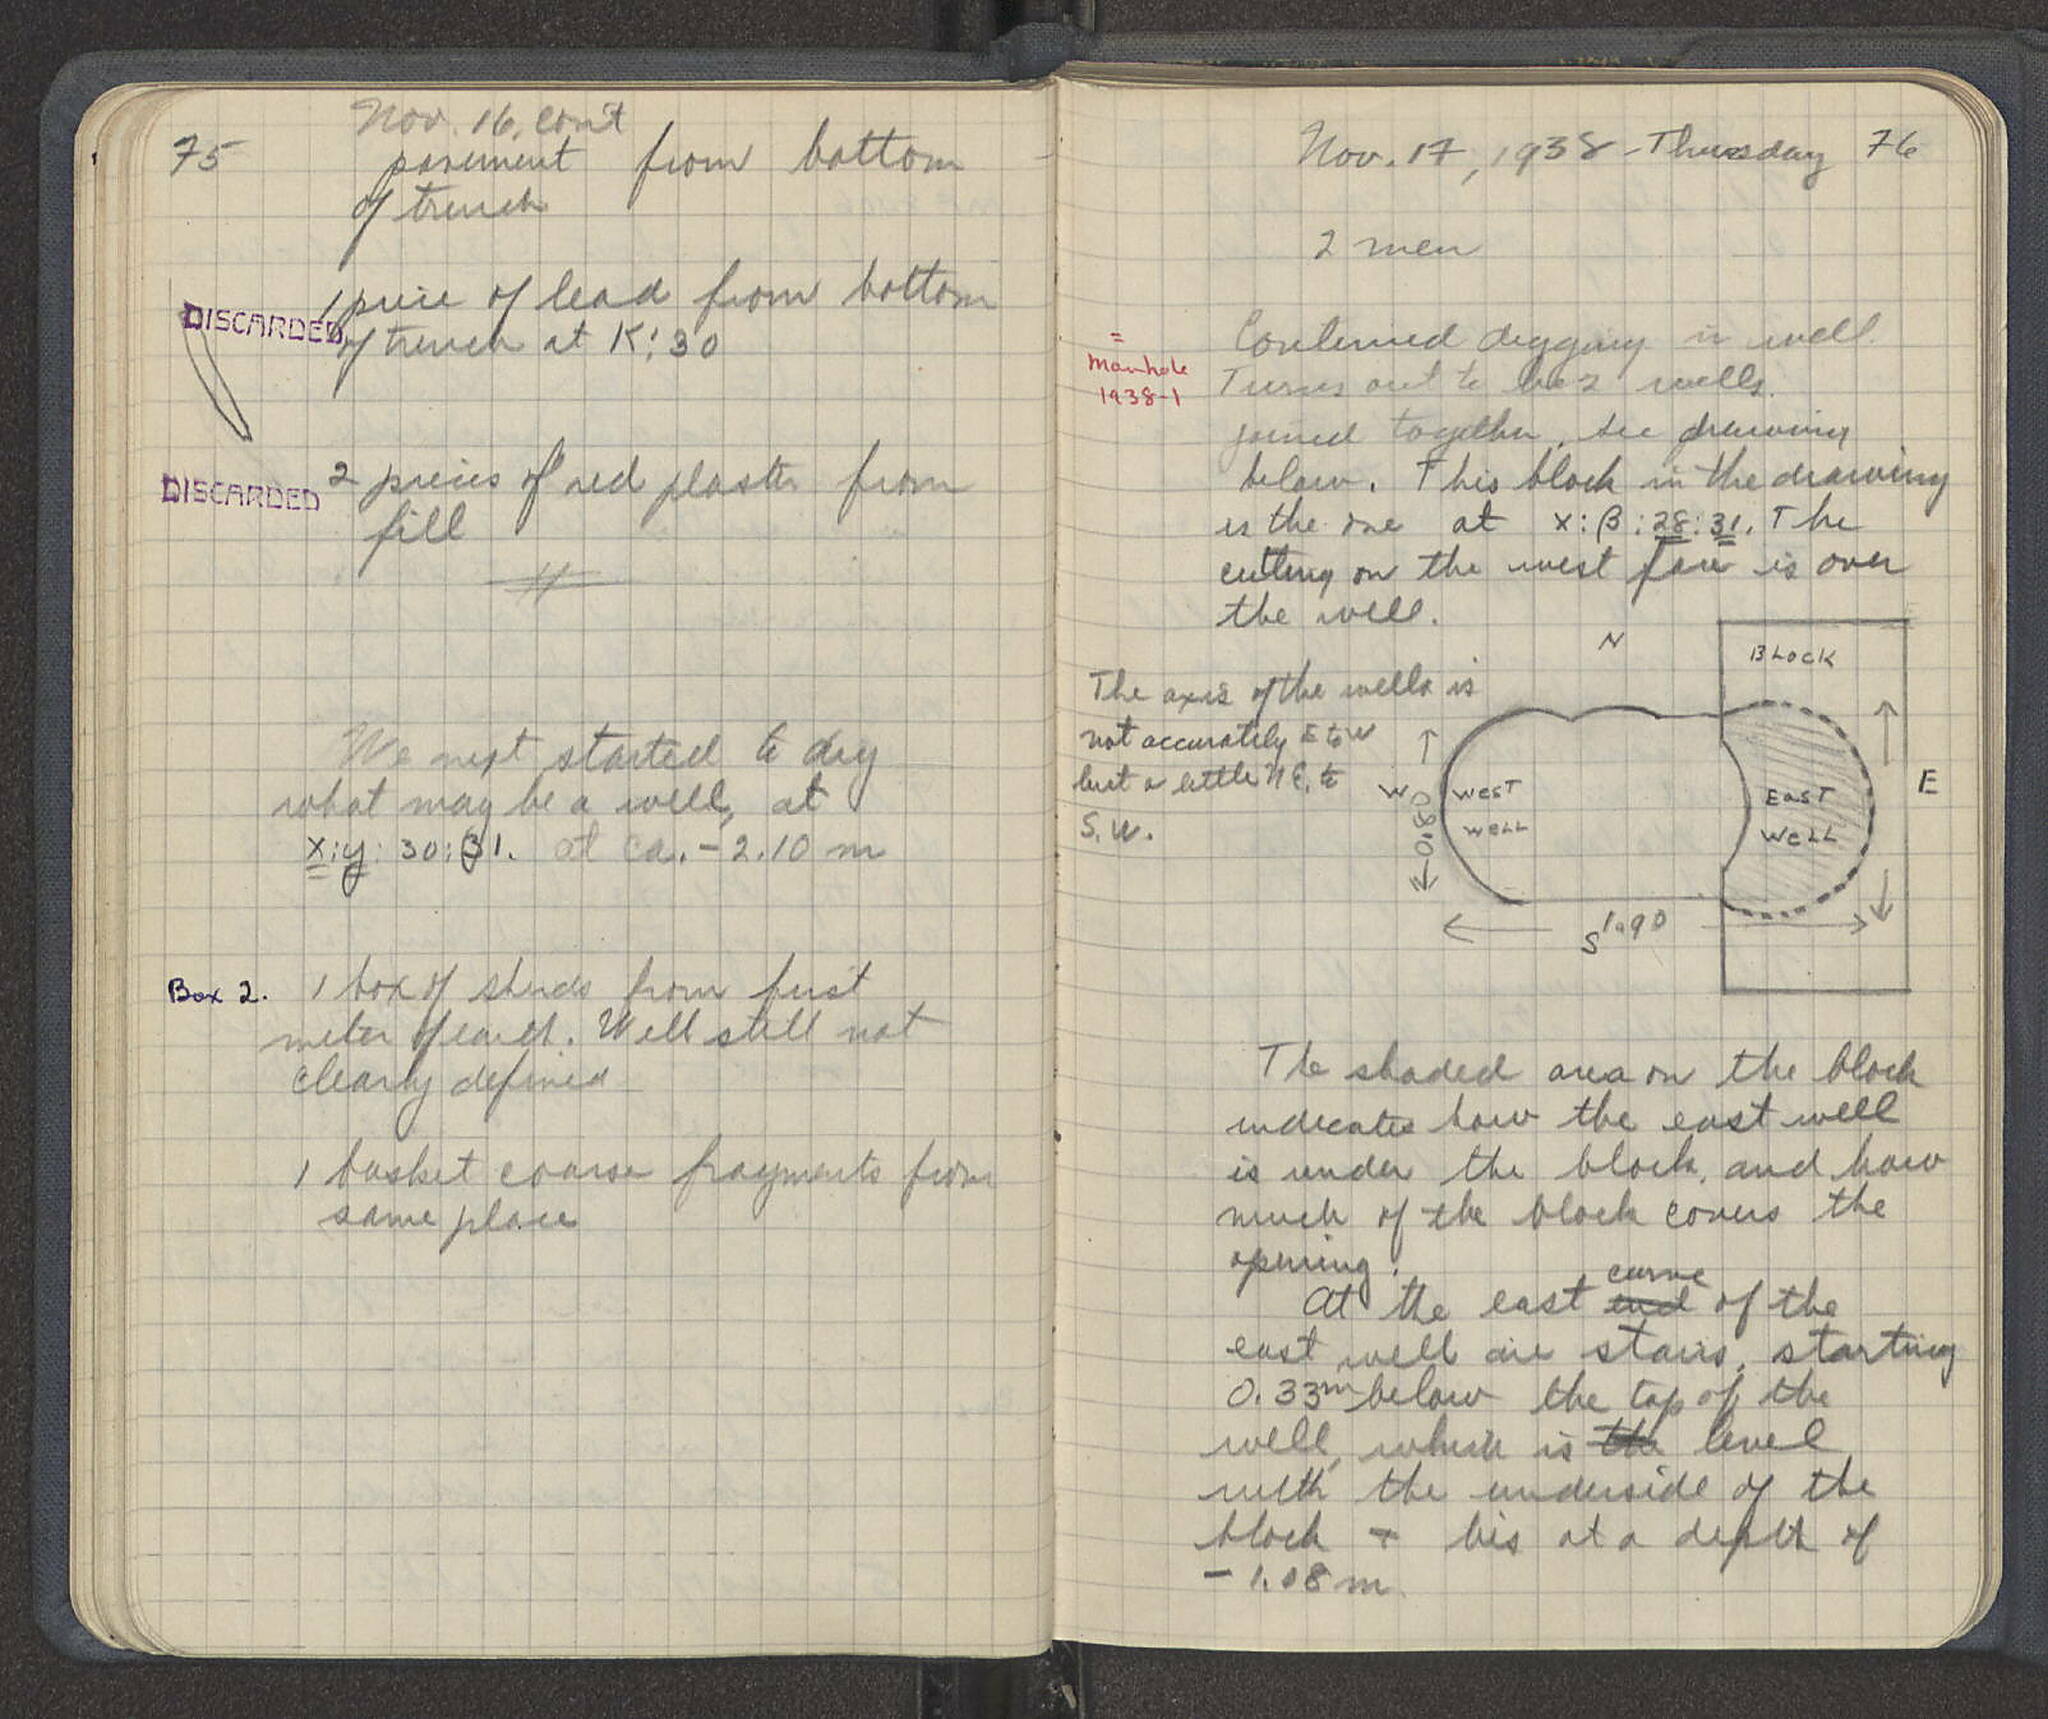 75
Nov. 16, con't
pavement from bottom
of trench
DISCARDED
1 piece of lead from bottom
of trench at K:30
DISCARDED
2 pieces of red plaster from
fill
We next started to dig
what may be a well, at
X:y: 30:31. at ca. -2.10 m
Box 2.
1 box of sherds from first
meter of earth. Well still not
clearly defined
1 basket coarse fragments from
same place
Nov. 17, 1938 - Thursday 76
2 men
=
Manhole
1938-1
Continued digging in well.
Turns out to be 2 wells.
joined together, see drawing
below. This block in the drawing
is the one at X:β:28:31. The
cutting on the west face is over
the well.
The axis of the wells is
not accurately E to W
but a little N.E. to
S.W.
N
BLOCK
W
0.80
WEST
WELL
EAST
WELL
E
S
1.90
The shaded area on the block
indicates how the east well
is under the block, and how
much of the block covers the
opening.
At the east end curve of the
east well are stairs, starting
0.33m below the top of the
well, which is the level
with the underside of the
block + lies at a depth of
- 1.08 m.